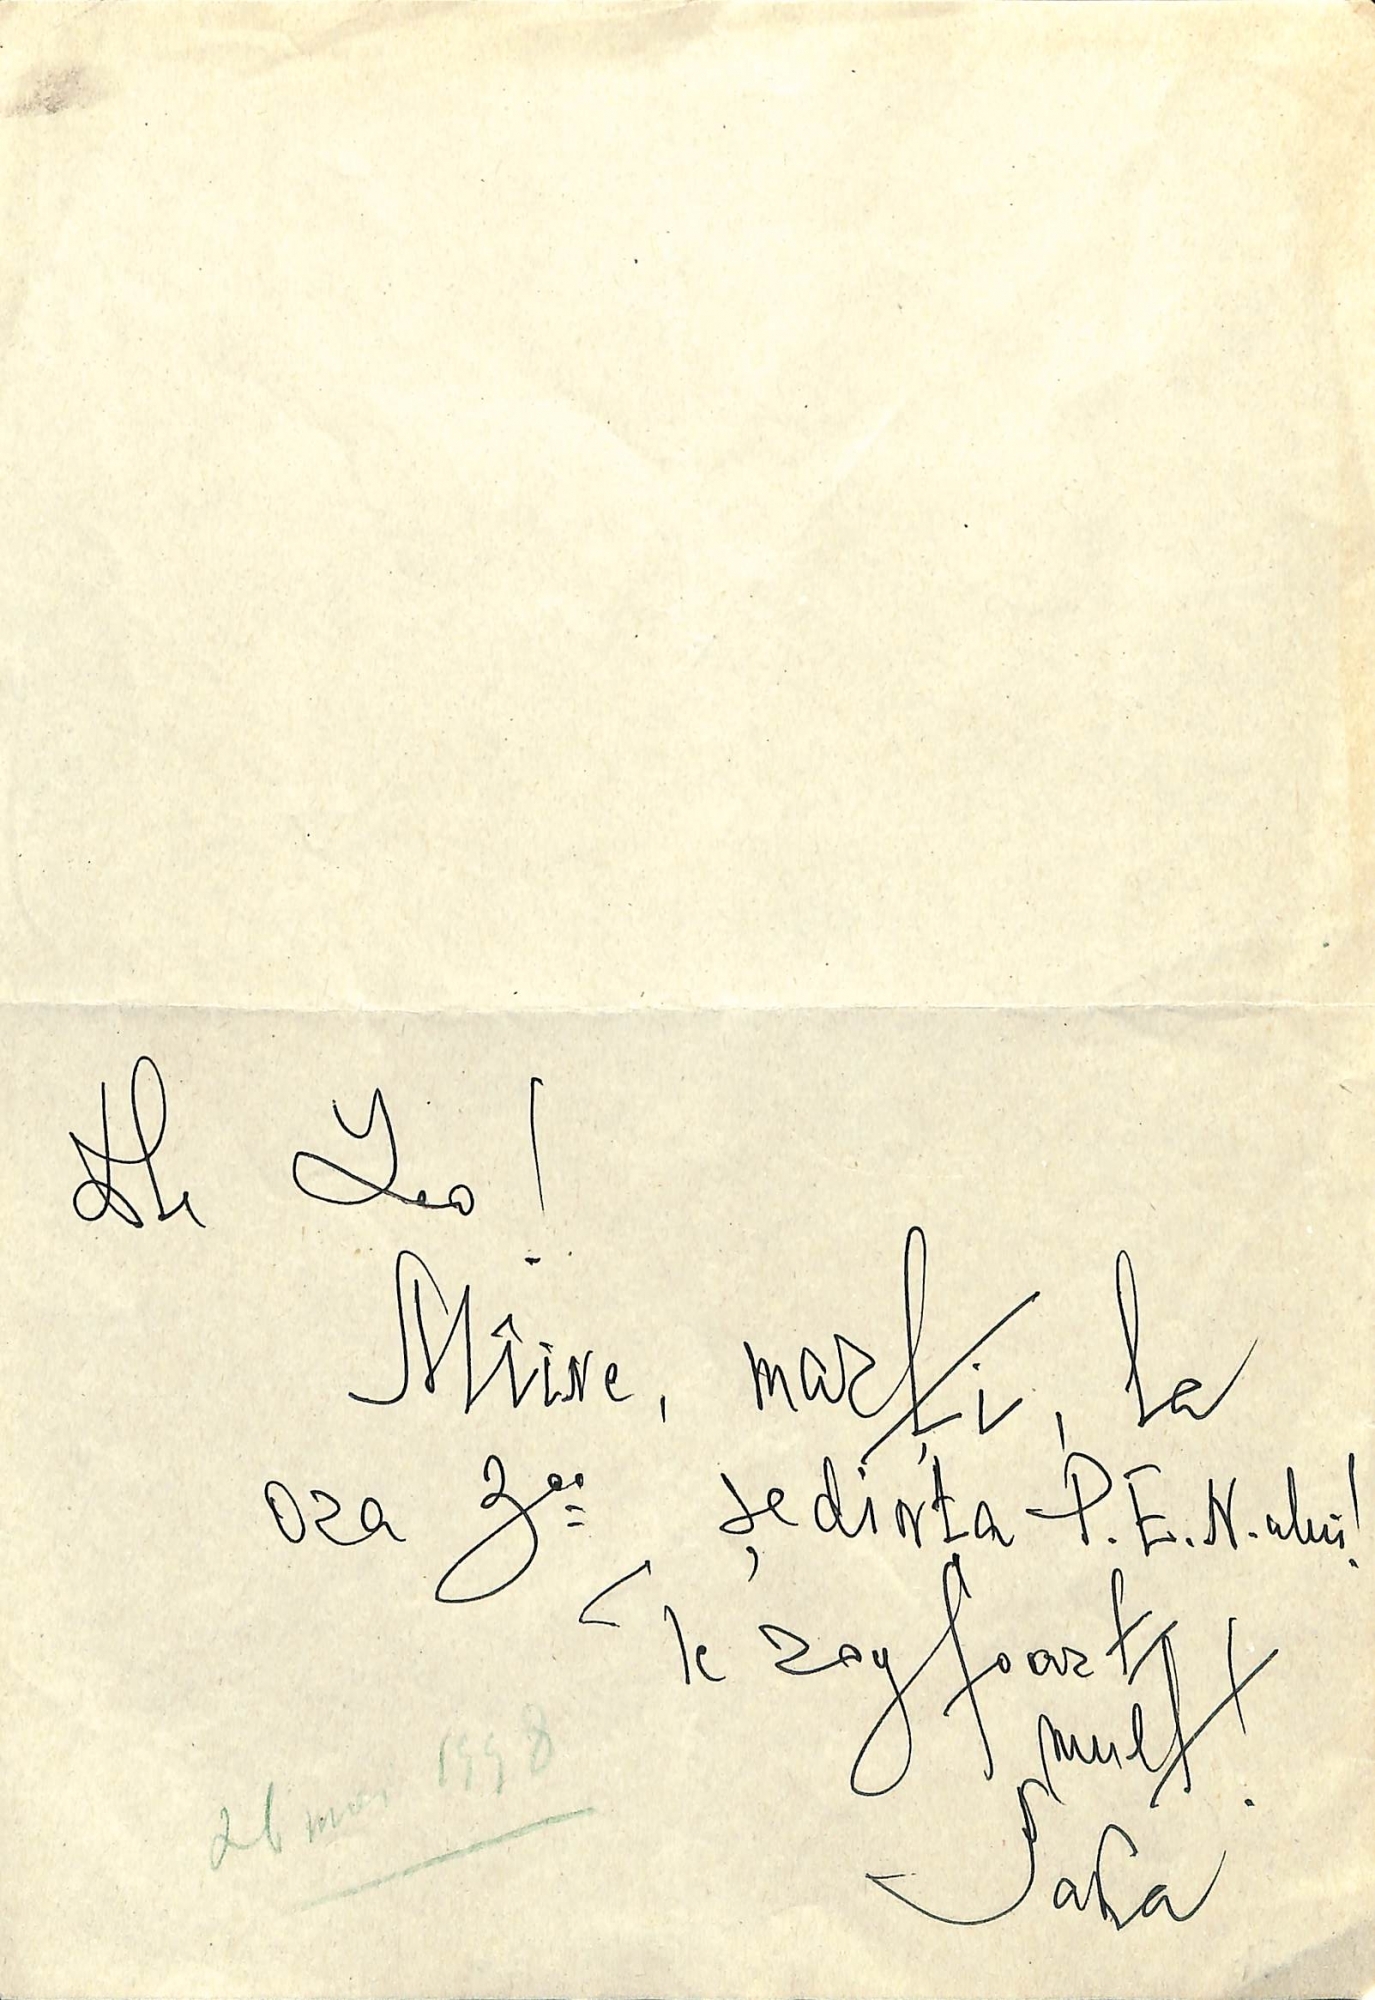 Leo!
Mîine, marți, la
ora 3oo ședința P.E.N.-ului!
Te rog foarte
mult!
26 mai 1998